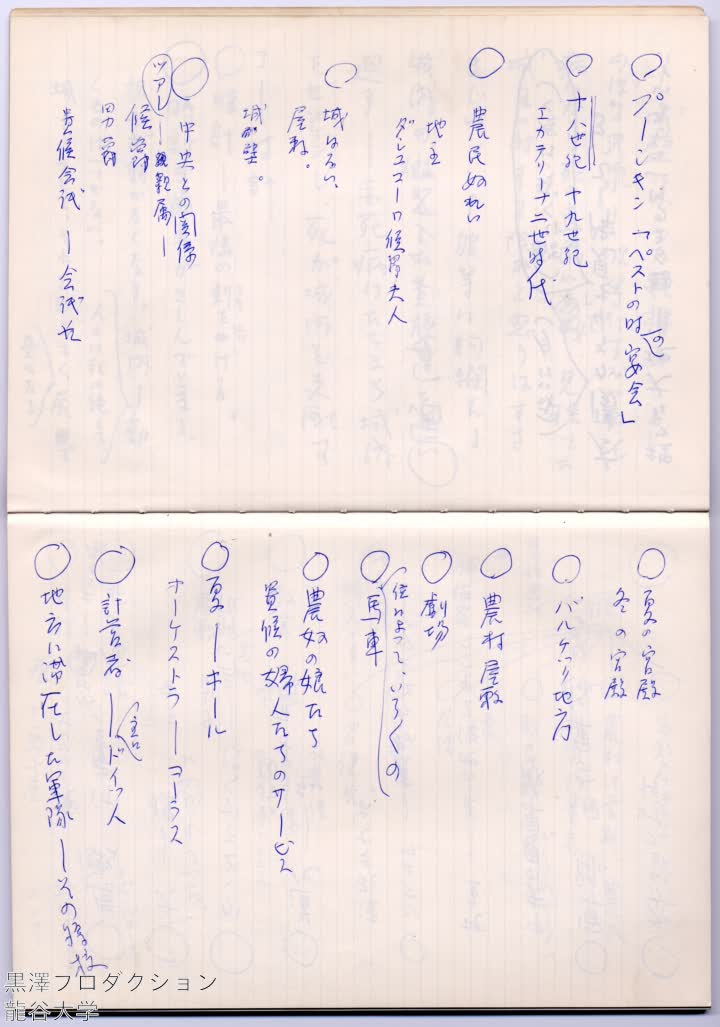 ○ プーシキン「ペストの時の宴会」
○ 十八世紀 十九世紀
エカテリーナ二世時代
○ 農民
地主
ダ 侯爵夫人
○ 城はない、
屋敷。
城 壁。
○ 中央との関係
ツアー ー 親属 ー
侯爵
男爵
貴侯会議 ー 会議
○ 夏の宮殿
冬の宮殿
○ バルケツク地方
○ 農村屋敷
○ 劇場
○ 馬車
(位によって、いろ〱の
○ 農奴の娘たち
貴候の婦人たちのサービス
○ 夏 ー ホール
オーケストラ ー コーラス
○ 計 者 ー ドイツ人
○ 地方に滞在した軍隊 ー その将校
黒澤プロダクション
龍谷大学